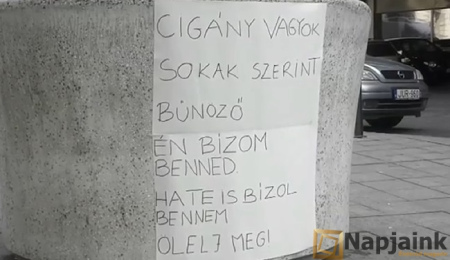 CIGÁNY VAGYOK
SOKAK SZERINT
BŰNÖZŐ
ÉN BIZOM
BENNED.
HA TE IS BIZOL
BENNEM
ÖLELJ MEG!
Napjaink